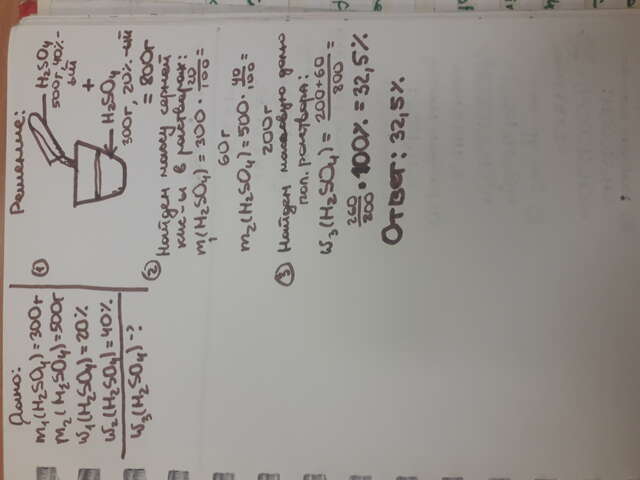 Дано:
m₁(H₂SO₄)=300г
m₂(H₂SO₄)=500г
W₁(H₂SO₄)=20%
W₂(H₂SO₄)=40%
W₃(H₂SO₄)-?
Решение:
①
H₂SO₄
500г, 40%-
ый
+
H₂SO₄
300г, 20%-ый
= 800г
②
Найдем массу серной
кис-ы в растворах:
m₁(H₂SO₄) = 300 · 20/100 =
60г
m₂(H₂SO₄) = 500 · 40/100 =
200г
③ Найдем массовую долю
пол. раствора:
W₃(H₂SO₄) = 200+60/800 =
260/800 · 100% = 32,5%
Ответ: 32,5%